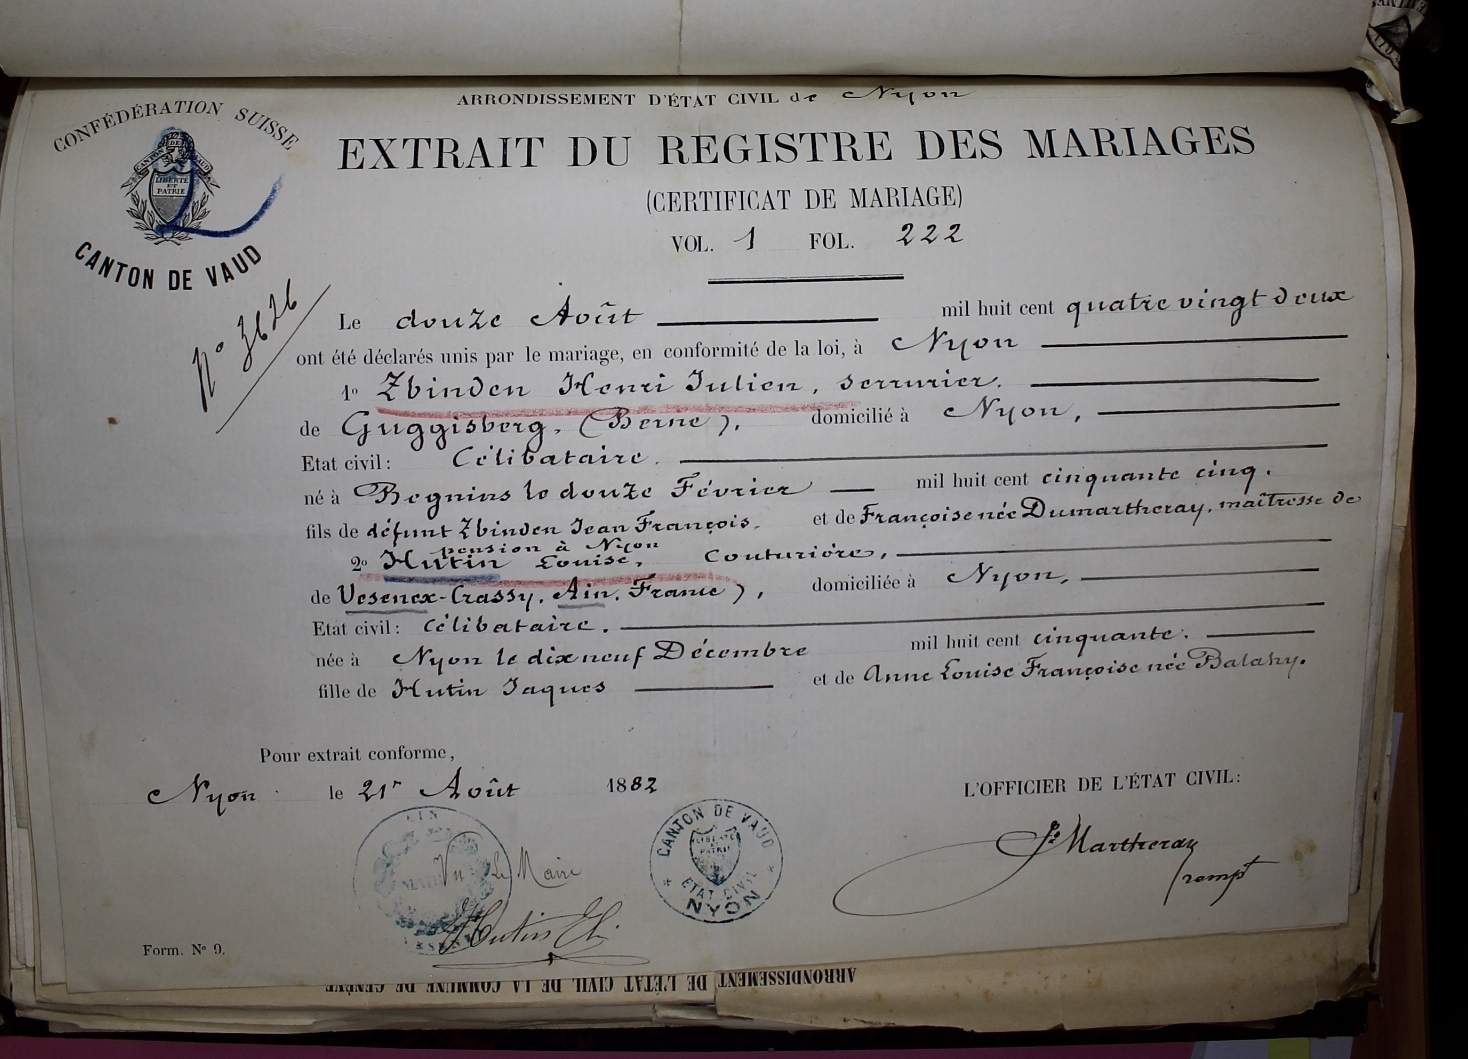 ARRONDISSEMENT D'ÉTAT CIVIL de Nyon
CONFÉDÉRATION SUISSE
CANTON DE VAUD
LIBERTÉ ET PATRIE
CANTON DE VAUD
EXTRAIT DU REGISTRE DES MARIAGES
(CERTIFICAT DE MARIAGE)
VOL. 1 FOL. 222
N° 3626
Le douze Août mil huit cent quatre vingt deux
ont été déclarés unis par le mariage, en conformité de la loi, à Nyon
1° Zbinden Henri Julien, serrurier.
de Guggisberg, (Berne), domicilié à Nyon,
Etat civil: Célibataire.
né à Begnins le douze Février mil huit cent cinquante cinq.
fils de défunt Zbinden Jean François, et de Françoise née Dumartheray, maîtresse de
pension à Nyon
2° Hutin Louise, Couturière,
de Vesenex-Crassy, Ain, France), domiciliée à Nyon,
Etat civil: Célibataire.
née à Nyon le dix neuf Décembre mil huit cent cinquante.
fille de Hutin Jaques et de Anne Louise Françoise née Balahy.
Pour extrait conforme,
Nyon le 21r Août 1882
L'OFFICIER DE L'ÉTAT CIVIL:
Martheray
rempt
Vu Le Maire
Hutin
CANTON DE VAUD
LIBERTÉ ET PATRIE
ETAT CIVIL
NYON
AIN
Form. N° 9.
ARRONDISSEMENT DE L'ÉTAT CIVIL DE LA COMMUNE DE GENÈVE